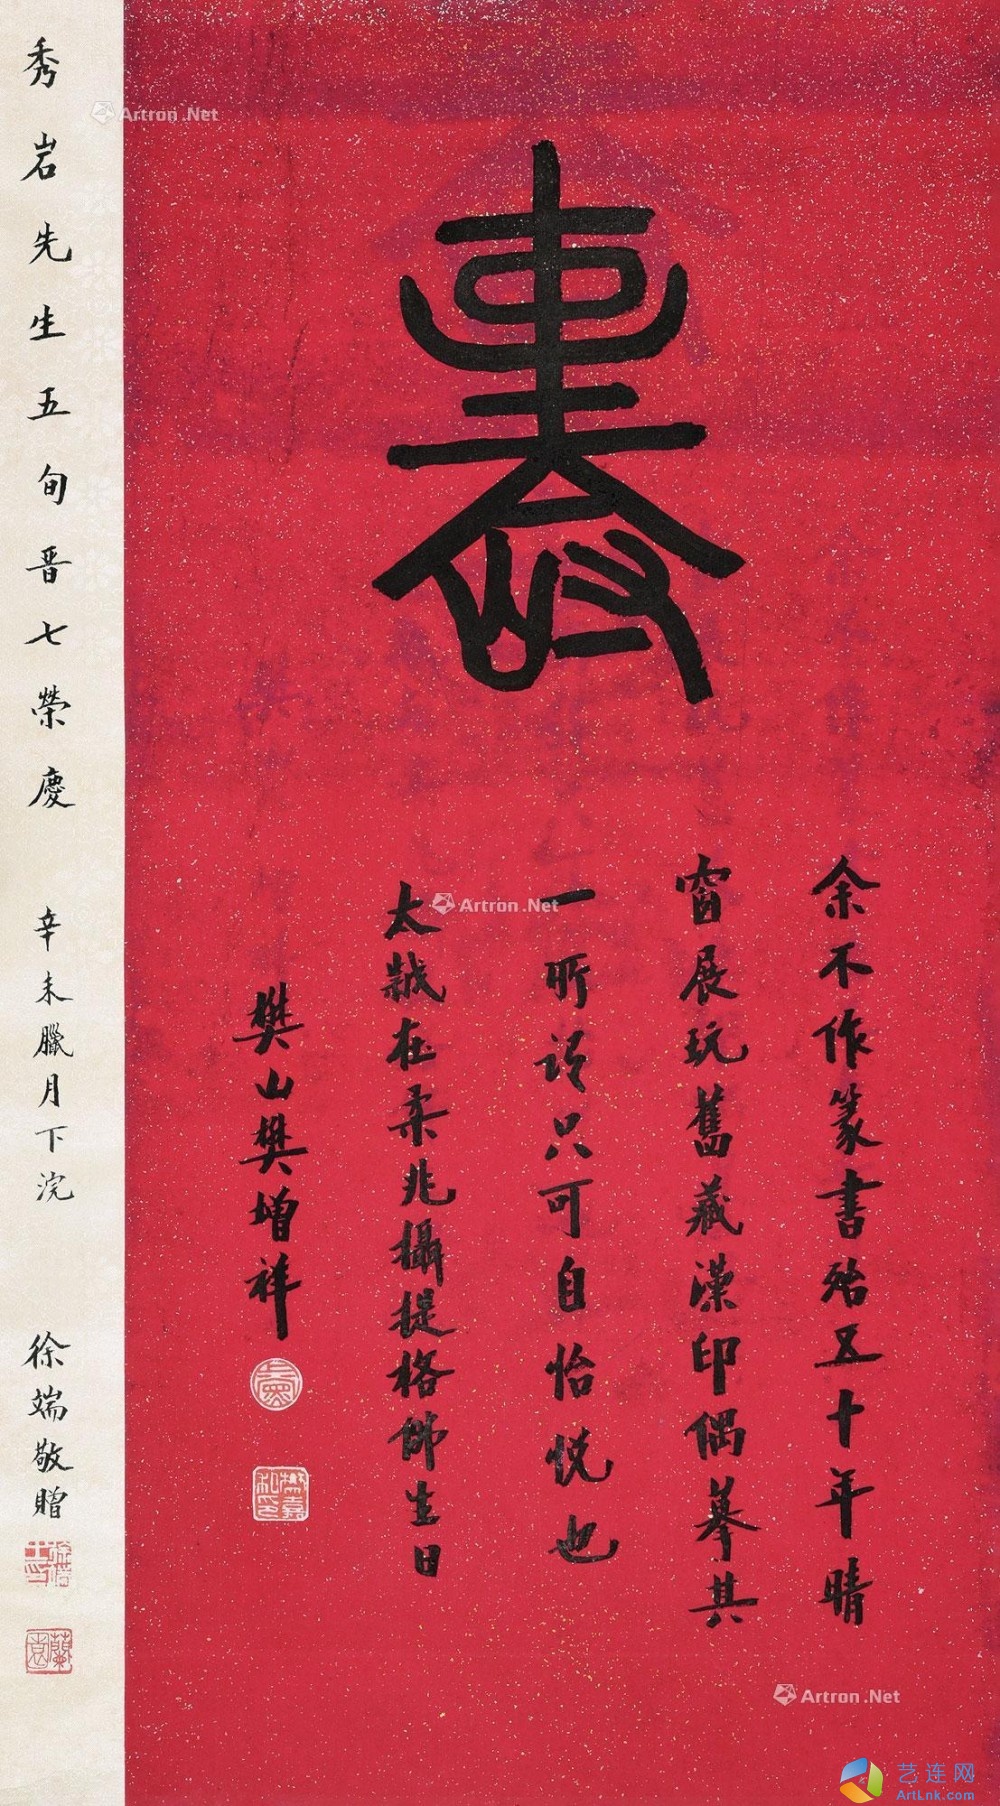 余不作篆書殆五十年晴
窗展玩舊藏漢印偶摹其
一所謂只可自怡悅也
太歲在柔兆攝提格佛生日
樊山樊增祥
秀岩先生五旬晋七榮慶
辛未臘月下浣
徐端敬贈
Artron.Net
Artron.Net
Artron.Net
艺连网
ArtLnk.com